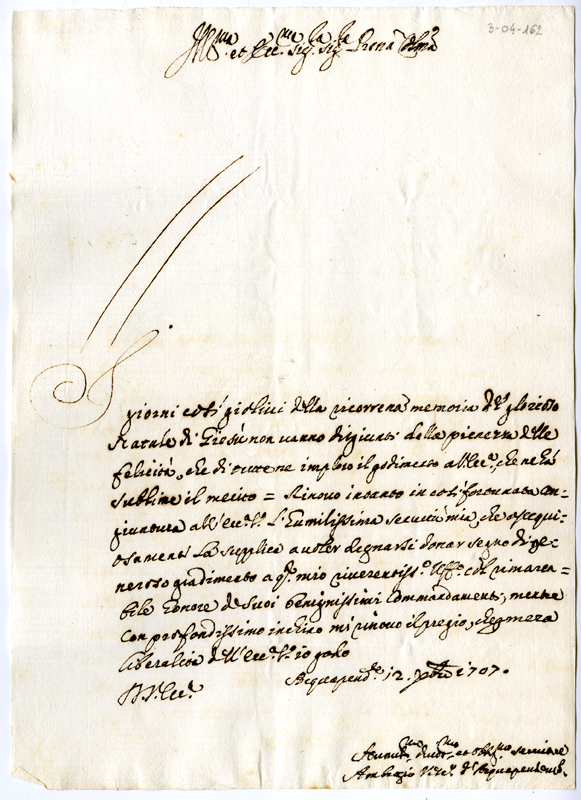 3-04-162
Ill.ma et Ecc.ma Sig.ra Sig.ra Prona Col.ma
I
giorni così giolivi della ricorrena memoria del glorioso
Natale di Giesù non vanno disgiunti dalla pienezza delle
felicità, che di tutte ne imploro il godimento all'Ecc.a che ne hà
sublime il merito = Rinovo intanto in così fortunata con-
giuntura all'Ecc.a V.a l'humilissima servitù mia, che ossequi-
osamente La supplica a voler degnarsi donar segno di ge-
neroso gradimento a q.o mio riverentiss.o Uff.o col rimarca-
bile honore de suoi benignissimi Commandamenti, mentre
con profondissimo inchino mi rinovo il pregio, che mera
liberalità dell'Ecc.a V.a io godo
D V. Ecc.a Acquapend.te 12. Xbre 1707.
Humil.mo Divot.mo et Oblig.mo servitore
Ambrogio d'Acquapendente.